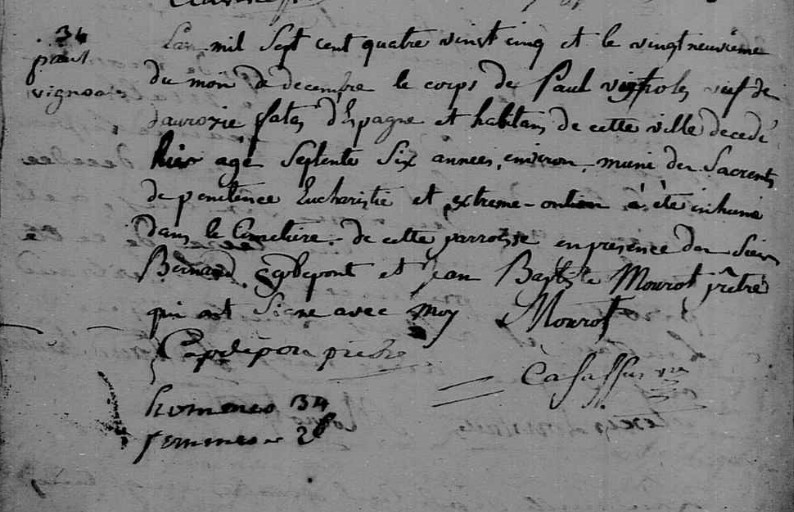 34
paul
vignoles
L'an mil sept cent quatre vinst cinq et le vingt neuvieme
du mois de decembre le corps de Paul vignoles veuf de
d'Espagne et habitans de cette ville decedé
hier agé septente six annees environ, muni des Sacrents
de penitence Eucharistie et extreme-ontion a été inhumé
dans le Cimetiere de cette parroisse en presence des Sieurs
Bernard Capdepont et jean Baptste Mourot prêtre
qui ont Signe avec moy Mourot
Capdepon pretre
Casassus vre
hommes 34
femmes 28